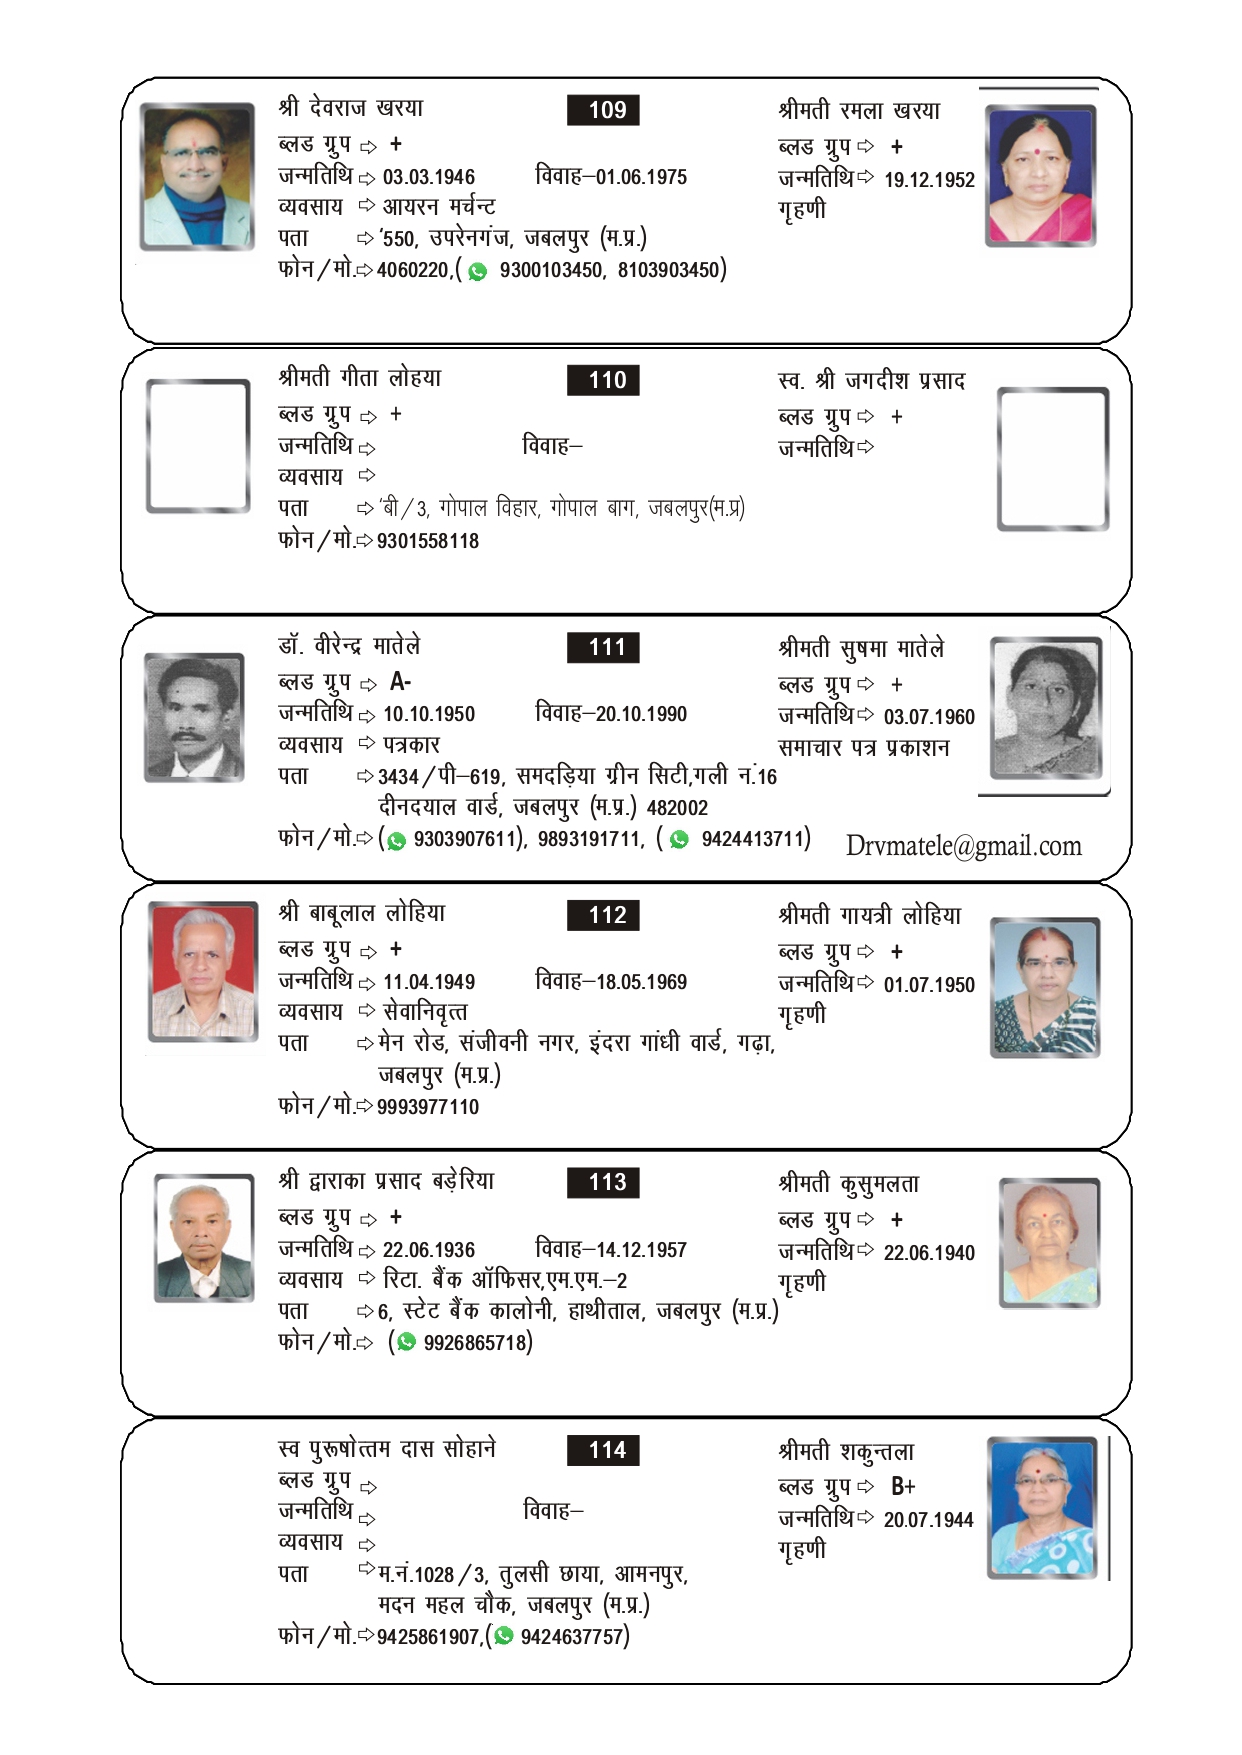 श्री देवराज खरया
109
श्रीमती रमला खरया
ब्लड ग्रुप ⇨ +
ब्लड ग्रुप ⇨ +
जन्मतिथि ⇨ 03.03.1946 विवाह–01.06.1975
जन्मतिथि ⇨ 19.12.1952
व्यवसाय ⇨ आयरन मर्चन्ट
गृहणी
पता ⇨ ‘550, उपरेनगंज, जबलपुर (म.प्र.)
फोन/मो.⇨ 4060220,( 9300103450, 8103903450)
श्रीमती गीता लोहया
110
स्व. श्री जगदीश प्रसाद
ब्लड ग्रुप ⇨ +
ब्लड ग्रुप ⇨ +
जन्मतिथि ⇨ विवाह–
जन्मतिथि ⇨
व्यवसाय ⇨
पता ⇨ ‘बी/3, गोपाल विहार, गोपाल बाग, जबलपुर(म.प्र)
फोन/मो.⇨ 9301558118
डॉ. वीरेन्द्र मातेले
111
श्रीमती सुषमा मातेले
ब्लड ग्रुप ⇨ A-
ब्लड ग्रुप ⇨ +
जन्मतिथि ⇨ 10.10.1950 विवाह–20.10.1990
जन्मतिथि ⇨ 03.07.1960
व्यवसाय ⇨ पत्रकार
समाचार पत्र प्रकाशन
पता ⇨ 3434/पी–619, समदड़िया ग्रीन सिटी,गली नं.16
दीनदयाल वार्ड, जबलपुर (म.प्र.) 482002
फोन/मो.⇨ ( 9303907611), 9893191711, ( 9424413711)
Drvmatele@gmail.com
श्री बाबूलाल लोहिया
112
श्रीमती गायत्री लोहिया
ब्लड ग्रुप ⇨ +
ब्लड ग्रुप ⇨ +
जन्मतिथि ⇨ 11.04.1949 विवाह–18.05.1969
जन्मतिथि ⇨ 01.07.1950
व्यवसाय ⇨ सेवानिवृत्त
गृहणी
पता ⇨ मेन रोड, संजीवनी नगर, इंदरा गांधी वार्ड, गढ़ा,
जबलपुर (म.प्र.)
फोन/मो.⇨ 9993977110
श्री द्वाराका प्रसाद बड़ेरिया
113
श्रीमती कुसुमलता
ब्लड ग्रुप ⇨ +
ब्लड ग्रुप ⇨ +
जन्मतिथि ⇨ 22.06.1936 विवाह–14.12.1957
जन्मतिथि ⇨ 22.06.1940
व्यवसाय ⇨ रिटा. बैंक ऑफिसर,एम.एम.–2
गृहणी
पता ⇨ 6, स्टेट बैंक कालोनी, हाथीताल, जबलपुर (म.प्र.)
फोन/मो.⇨ ( 9926865718)
स्व पुरूषोत्तम दास सोहाने
114
श्रीमती शकुन्तला
ब्लड ग्रुप ⇨
ब्लड ग्रुप ⇨ B+
जन्मतिथि ⇨ विवाह–
जन्मतिथि ⇨ 20.07.1944
व्यवसाय ⇨
गृहणी
पता ⇨ म.नं.1028/3, तुलसी छाया, आमनपुर,
मदन महल चौक, जबलपुर (म.प्र.)
फोन/मो.⇨ 9425861907,( 9424637757)